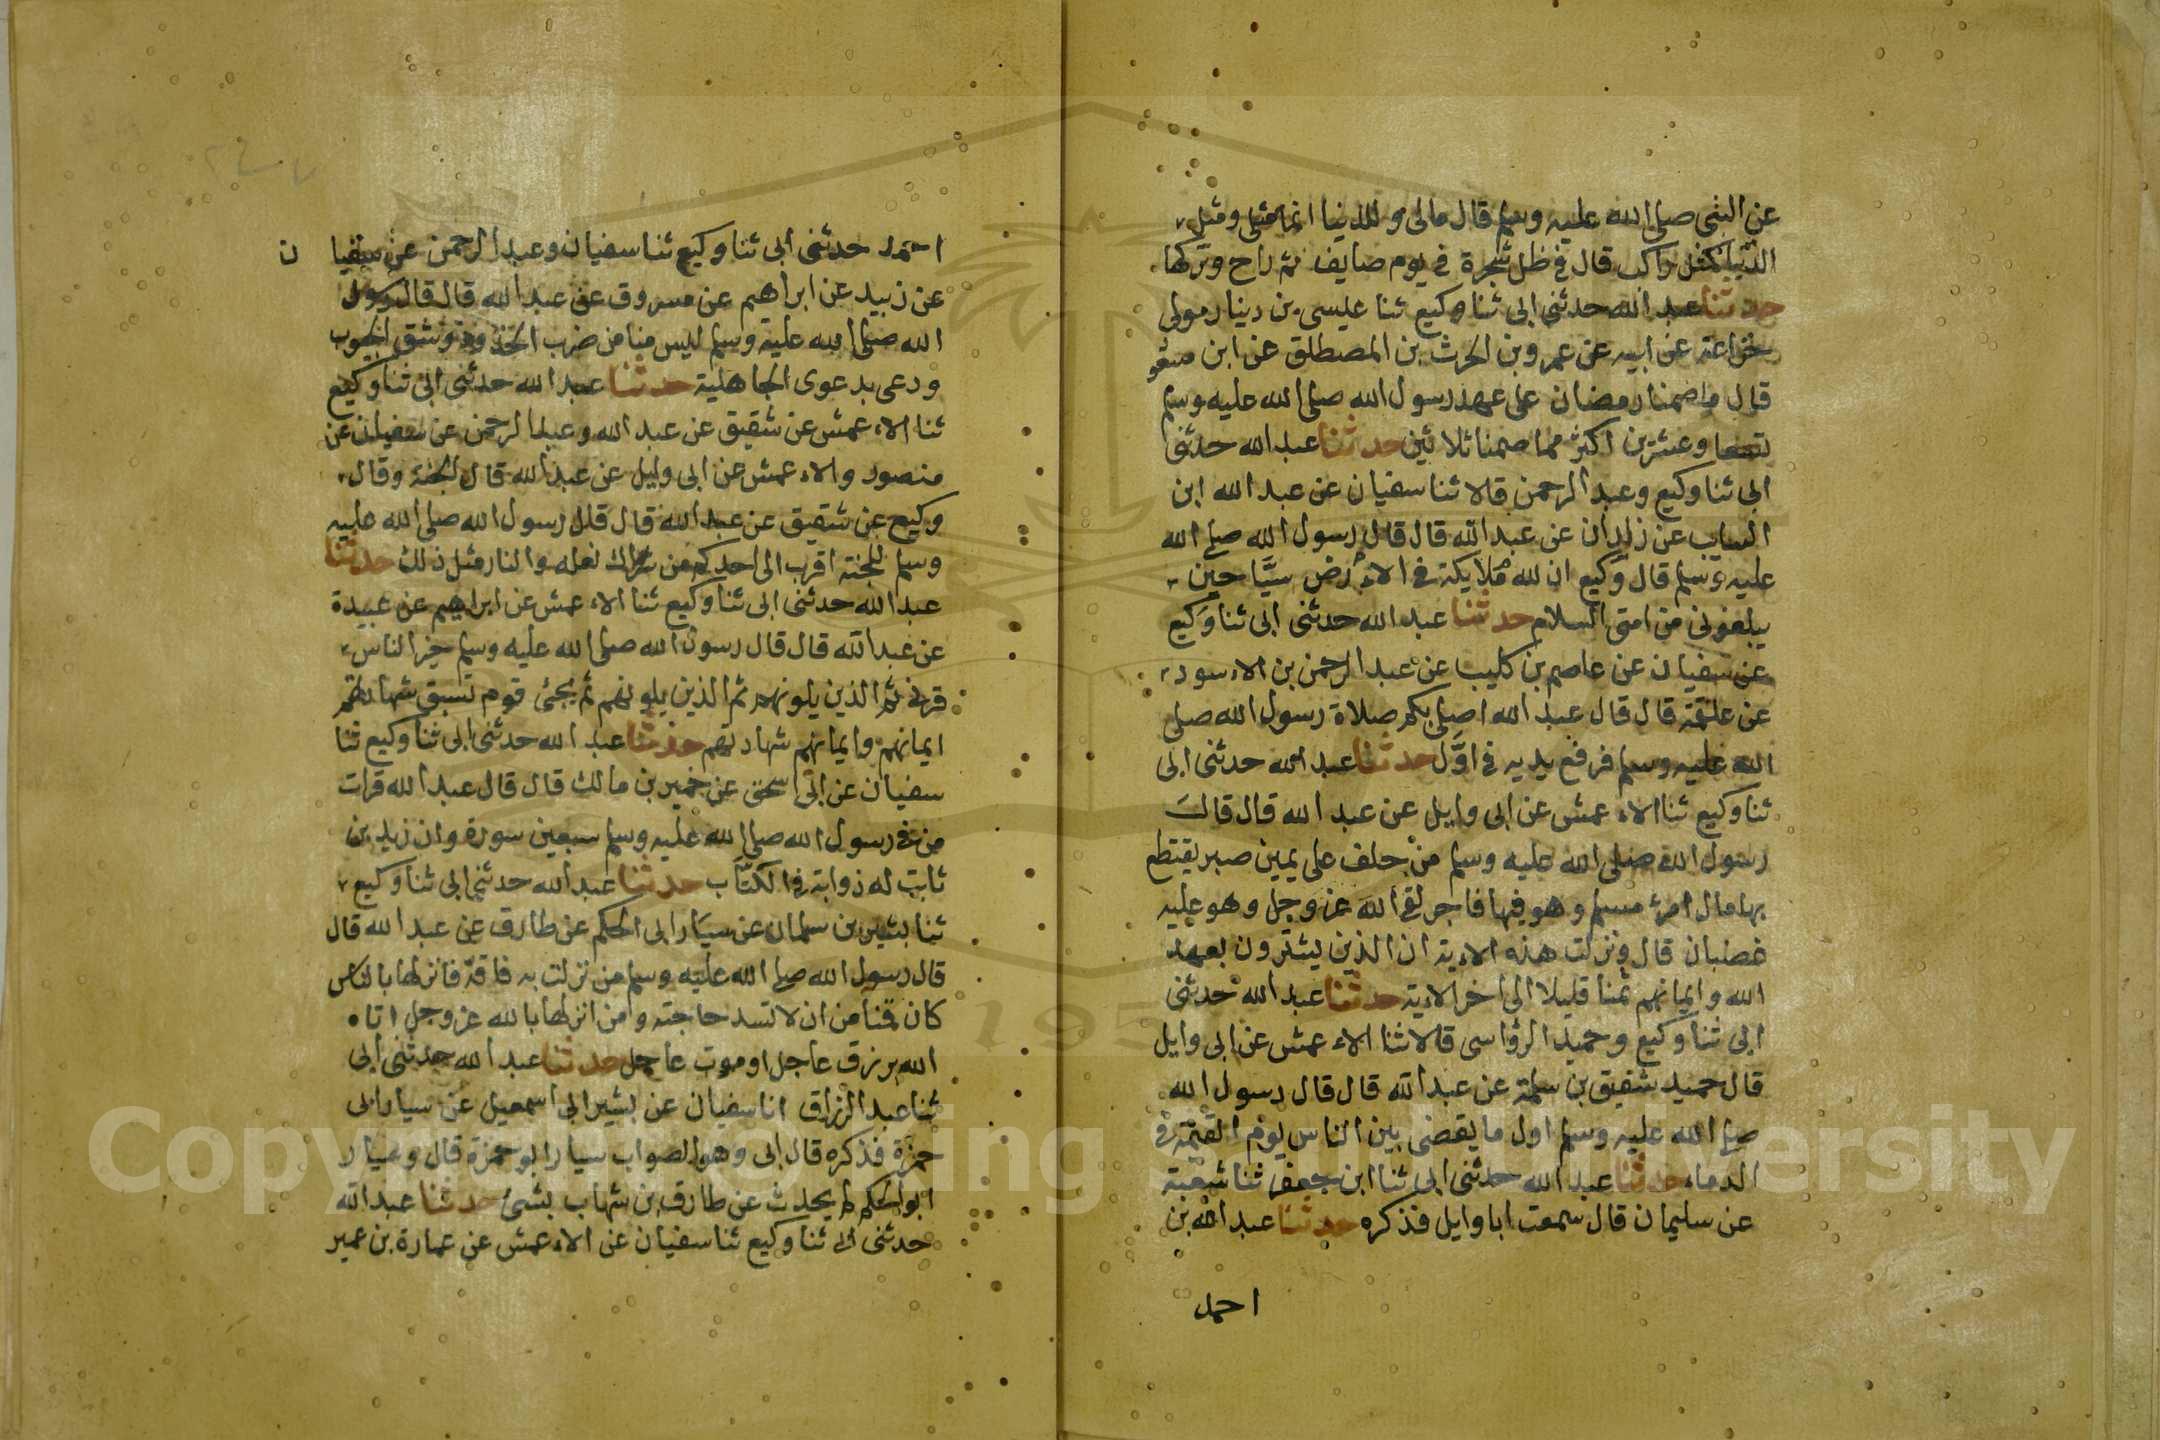 عن النبى صلى الله عليه وسلم قال مالى وللدنيا انما مثلى ومثل
الدنيا كمثل راكب قال فى ظل شجرة فى يوم صايف ثم راح وتركها
حدثنا عبد الله حدثنى ابى ثنا وكيع ثنا عيسى بن دينار مولى
خزاعة عن ابيه عن عمرو بن الحرث بن المصطلق عن ابن مسعو
قال ما صمنا رمضان على عهد رسول الله صلى الله عليه وسلم
تسعا وعشرين اكثر مما صمنا ثلاثين حدثنا عبد الله حدثنى
ابى ثنا وكيع وعبد الرحمن قالا ثنا سفيان عن عبد الله ابن
السايب عن زاذان عن عبد الله قال قال رسول الله صلى الله
عليه وسلم قال وكيع ان لله ملايكة فى الارض سيّاحين
يبلغونى من امتى السلام حدثنا عبد الله حدثنى ابى ثنا وكيع
عن سفيان عن عاصم بن كليب عن عبد الرحمن بن الاسود
عن علقمة قال قال عبد الله اصلى بكم صلاة رسول الله صلى
الله عليه وسلم فرفع يديه فى اوّل حدثنا عبد الله حدثنى ابى
ثنا وكيع ثنا الاعمش عن ابى وايل عن عبد الله قال قالت
رسول الله صلى الله عليه وسلم من حلف على يمين صبر يقتطع
بها مال امرئ مسلم وهو فيها فاجر لقى الله عز وجل وهو عليه
غضبان قال ونزلت هذه الاية ان الذين يشترون بعهد
الله وايمانهم ثمنا قليلا الى اخر الاية حدثنا عبد الله حدثنى
ابى ثنا وكيع وحميد الرؤاسى قالا ثنا الاعمش عن ابى وايل
قال حميد شقيق بن سلمة عن عبد الله قال قال رسول الله
صلى الله عليه وسلم اول ما يقضى بين الناس يوم القيمة فى
الدماء حدثنا عبد الله حدثنى ابى ثنا ابن جعفر ثنا شعبة
عن سليمان قال سمعت ابا وايل فذكره حدثنا عبد الله بن
احمد
احمد حدثنى ابى ثنا وكيع ثنا سفيان وعبد الرحمن عن سفيا ن
عن زبيد عن ابراهيم عن مسروق عن عبد الله قال قال رسول
الله صلى الله عليه وسلم ليس منا من ضرب الخدود وشق الجيوب
ودعى بدعوى الجاهلية حدثنا عبد الله حدثنى ابى ثنا وكيع
ثنا الاعمش عن شقيق عن عبد الله وعبد الرحمن عن سفيان عن
منصور والاعمش عن ابى وايل عن عبد الله قال الجنة وقال
وكيع عن شقيق عن عبد الله قال قال رسول الله صلى الله عليه
وسلم للجنة اقرب الى احدكم من شراك نعله والنار مثل ذلك حدثنا
عبد الله حدثنى ابى ثنا وكيع ثنا الاعمش عن ابراهيم عن عبيدة
عن عبد الله قال قال رسول الله صلى الله عليه وسلم خير الناس
قرنى ثم الذين يلونهم ثم الذين يلونهم ثم يجئ قوم تسبق شهادتهم
ايمانهم وايمانهم شهادتهم حدثنا عبد الله حدثنى ابى ثنا وكيع ثنا
سفيان عن ابى اسحق عن خمير بن مالك قال قال عبد الله قرات
من فى رسول الله صلى الله عليه وسلم سبعين سورة وان زيد بن
ثابت له ذوابة فى الكتّاب حدثنا عبد الله حدثنى ابى ثنا وكيع
ثنا بشير بن سلمان عن سيّار ابى الحكم عن طارق عن عبد الله قال
قال رسول الله صلى الله عليه وسلم من نزلت به فاقة فانزلها بالناس
كان قمنا من ان لا تسد حاجته ومن انزلها بالله عز وجل اتاه
الله برزق عاجل او موت عاجل حدثنا عبد الله حدثنى ابى
ثنا عبد الرزاق انا سفيان عن بشير ابى اسمعيل عن سيار ابى
حمزة فذكره قال ابى وهو الصواب سيار ابو حمزة قال وسيار
ابو الحكم لم يحدث عن طارق بن شهاب بشئ حدثنا عبد الله
حدثنى ابى ثنا وكيع ثنا سفيان عن الاعمش عن عمارة بن عمير